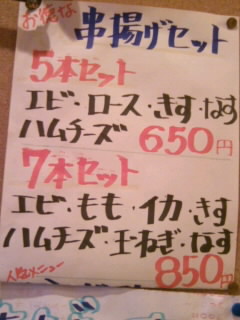 お得な
串揚げセット
5本セット
エビ・ロース・きす・なす
ハムチーズ 650円
7本セット
エビ・もも・イカ・きす
ハムチーズ・玉ねぎ・なす
人気メニュー 850円